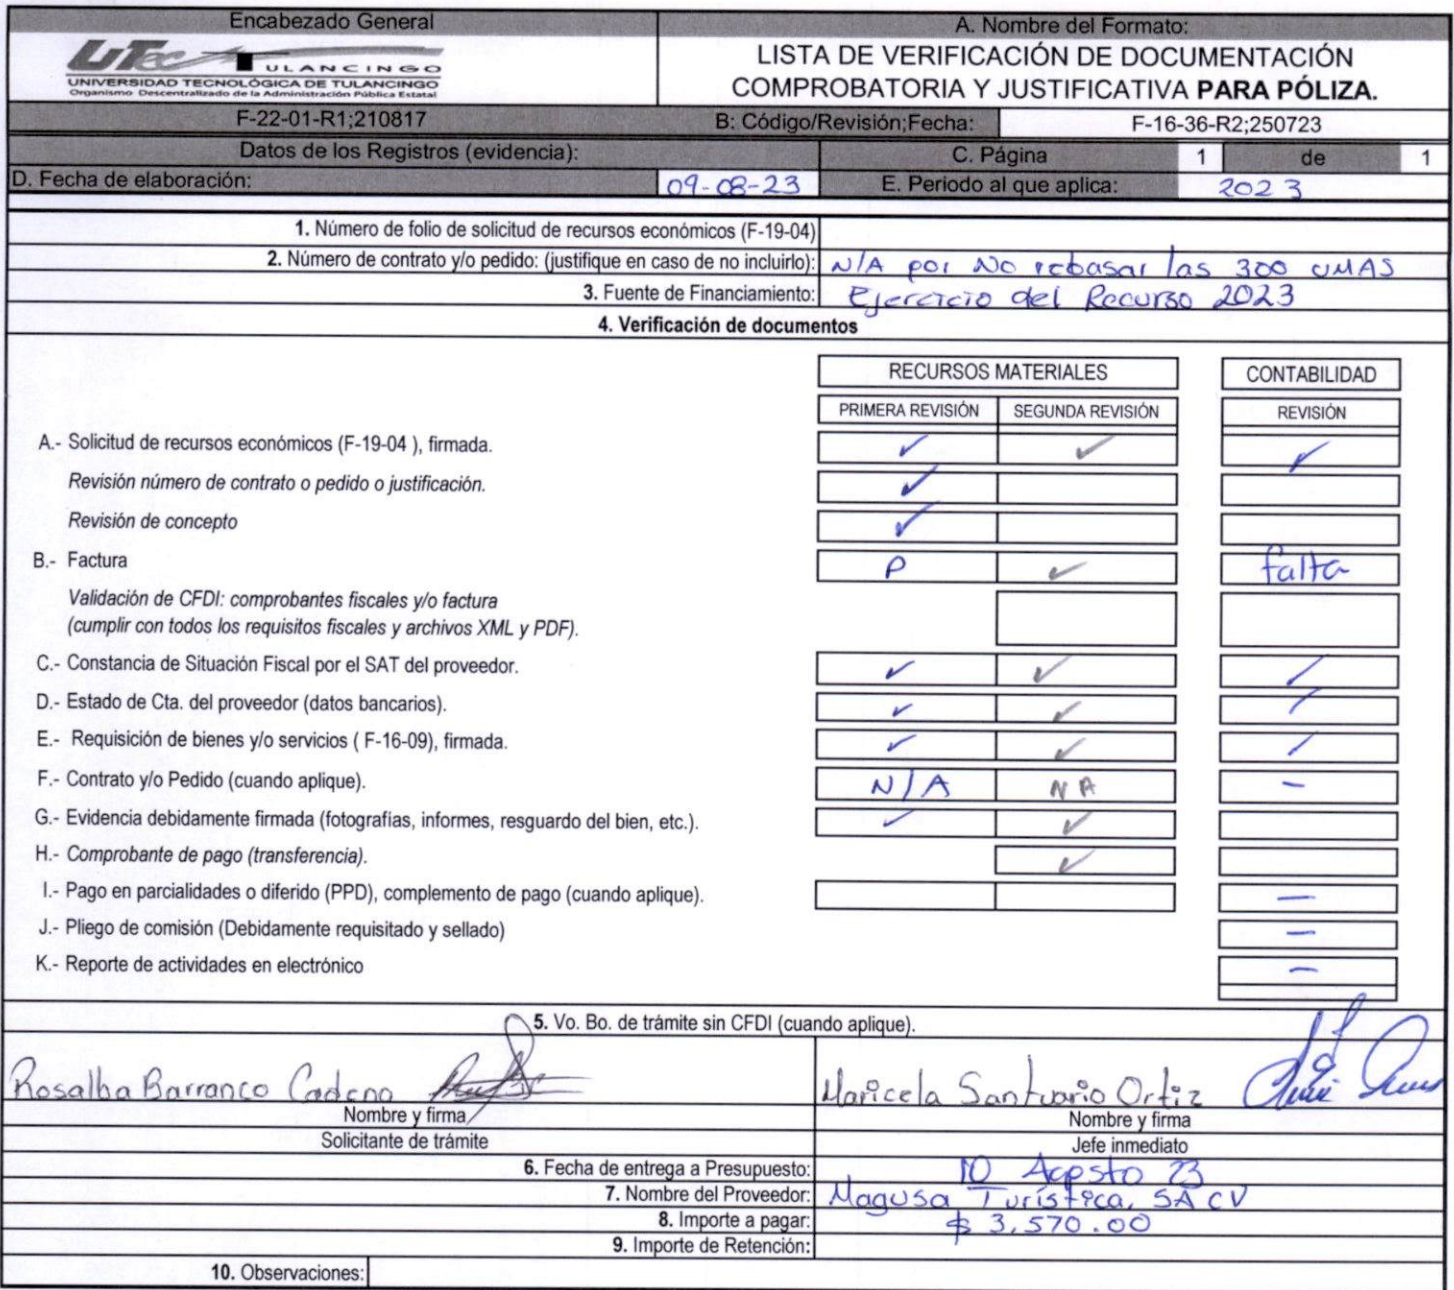 Encabezado General
A. Nombre del Formato:
UTec TULANCINGO
UNIVERSIDAD TECNOLÓGICA DE TULANCINGO
Organismo Descentralizado de la Administración Pública Estatal
LISTA DE VERIFICACIÓN DE DOCUMENTACIÓN
COMPROBATORIA Y JUSTIFICATIVA PARA PÓLIZA.
F-22-01-R1;210817 B: Código/Revisión;Fecha: F-16-36-R2;250723
Datos de los Registros (evidencia): C. Página 1 de 1
D. Fecha de elaboración: 09-08-23 E. Periodo al que aplica: 2023
1. Número de folio de solicitud de recursos económicos (F-19-04)
2. Número de contrato y/o pedido: (justifique en caso de no incluirlo): N/A por No rebasar las 300 UMAS
3. Fuente de Financiamiento: Ejercicio del Recurso 2023
4. Verificación de documentos
RECURSOS MATERIALES CONTABILIDAD
PRIMERA REVISIÓN SEGUNDA REVISIÓN REVISIÓN
A.- Solicitud de recursos económicos (F-19-04 ), firmada. ✓ ✓ ✓
Revisión número de contrato o pedido o justificación. ✓
Revisión de concepto ✓
B.- Factura P ✓ falta
Validación de CFDI: comprobantes fiscales y/o factura
(cumplir con todos los requisitos fiscales y archivos XML y PDF).
C.- Constancia de Situación Fiscal por el SAT del proveedor. ✓ ✓ /
D.- Estado de Cta. del proveedor (datos bancarios). ✓ ✓ /
E.- Requisición de bienes y/o servicios ( F-16-09), firmada. ✓ ✓ /
F.- Contrato y/o Pedido (cuando aplique). N/A NA –
G.- Evidencia debidamente firmada (fotografías, informes, resguardo del bien, etc.). ✓ ✓
H.- Comprobante de pago (transferencia). ✓
I.- Pago en parcialidades o diferido (PPD), complemento de pago (cuando aplique). –
J.- Pliego de comisión (Debidamente requisitado y sellado) –
K.- Reporte de actividades en electrónico –
5. Vo. Bo. de trámite sin CFDI (cuando aplique).
Rosalba Barranco Cadena Maricela Santuario Ortiz
Nombre y firma Nombre y firma
Solicitante de trámite Jefe inmediato
6. Fecha de entrega a Presupuesto: 10 Agosto 23
7. Nombre del Proveedor: Magusa Turística, SA CV
8. Importe a pagar: $ 3,570.00
9. Importe de Retención:
10. Observaciones: